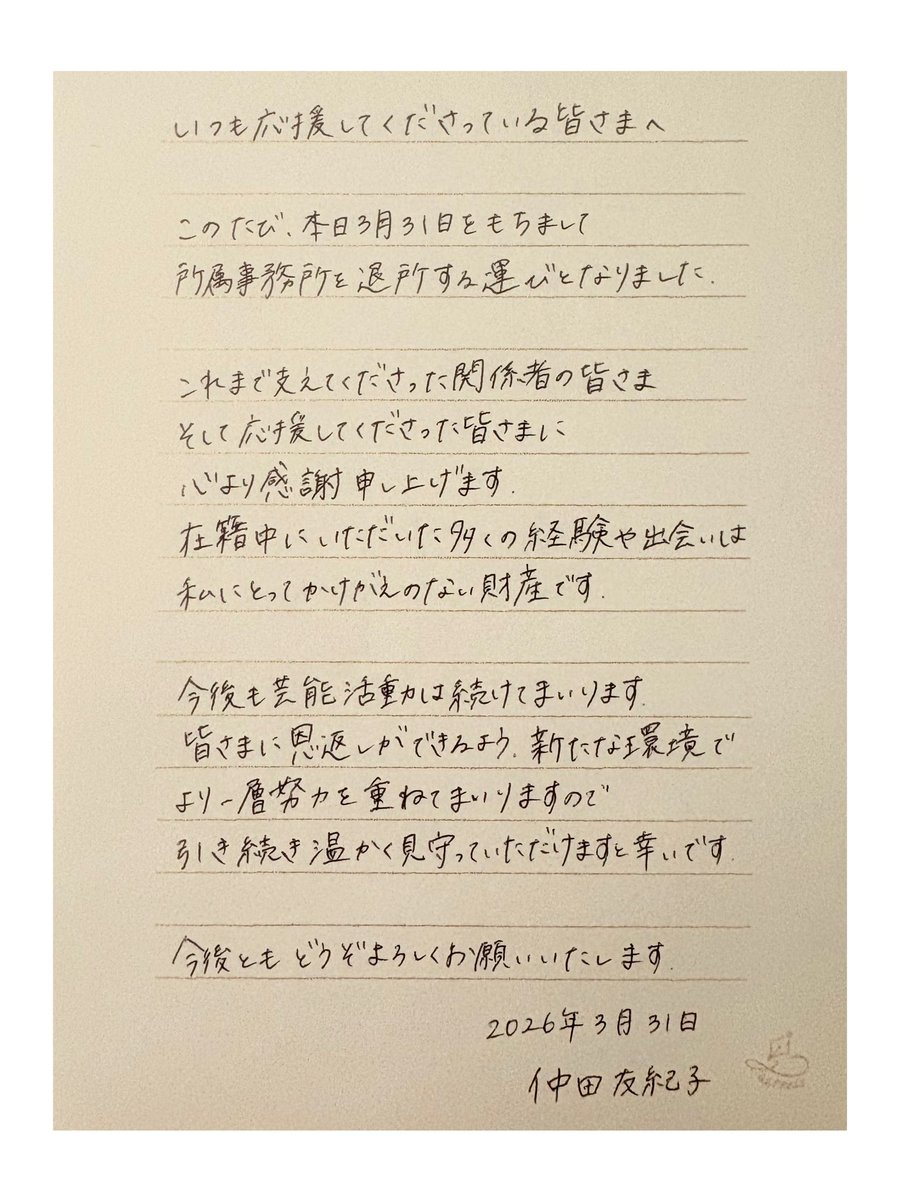 いつも応援してくださっている皆さまへ
このたび、本日3月31日をもちまして
所属事務所を退所する運びとなりました.
これまで支えてくださった関係者の皆さま
そして応援してくださった皆さまに
心より感謝申し上げます.
在籍中にいただいた多くの経験や出会いは
私にとってかけがえのない財産です.
今後も芸能活動は続けてまいります.
皆さまに恩返しができるよう、新たな環境で
より一層努力を重ねてまいりますので
引き続き温かく見守っていただけますと幸いです.
今後ともどうぞよろしくお願いいたします.
2026年3月31日
仲田友紀子